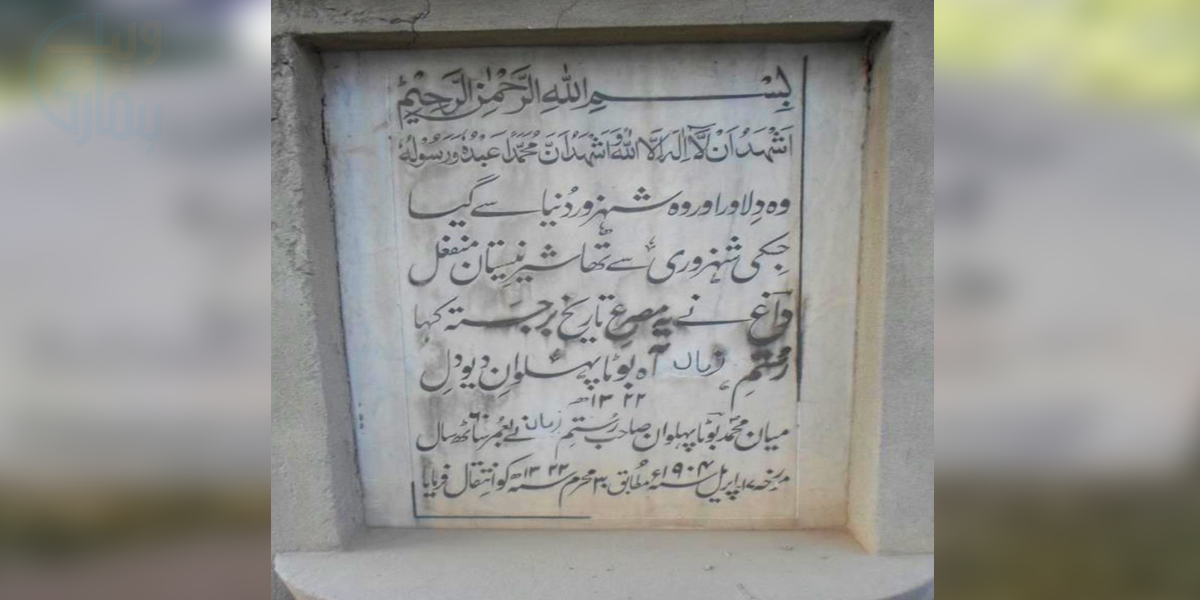 بِسْمِ اللهِ الرَّحْمٰنِ الرَّحِيْمِ
اَشْهَدُ اَنْ لَّا اِلٰهَ اِلَّا اللهُ وَاَشْهَدُ اَنَّ مُحَمَّدًا عَبْدُهٗ وَرَسُوْلُهٗ
وہ دِلاور اور وہ شہزور دُنیا سے گیا
جسکی شہزوری سے تھا شیرِ نیستان منفعل
داغ نے یہ مصرعِ تاریخ برجستہ کہا
رُستمِ زماں آہ بوٹا پہلوانِ دیو دِل
۱۳۲۲ھ
میاں محمّد بوٹا پہلوان صاحب رُستمِ زماں نے بعمر ساٹھ ۶۰ سال
مورخہ ۱۷ اپریل سنہ ۱۹۰۴ء مطابق ۳۰ محرم سنہ ۱۳۲۲ھ کو انتقال فرمایا